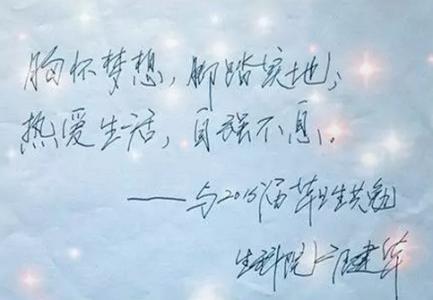 胸怀梦想，脚踏实地；
热爱生活，自强不息。
——与2015届毕业生共勉
生科院 汪建华